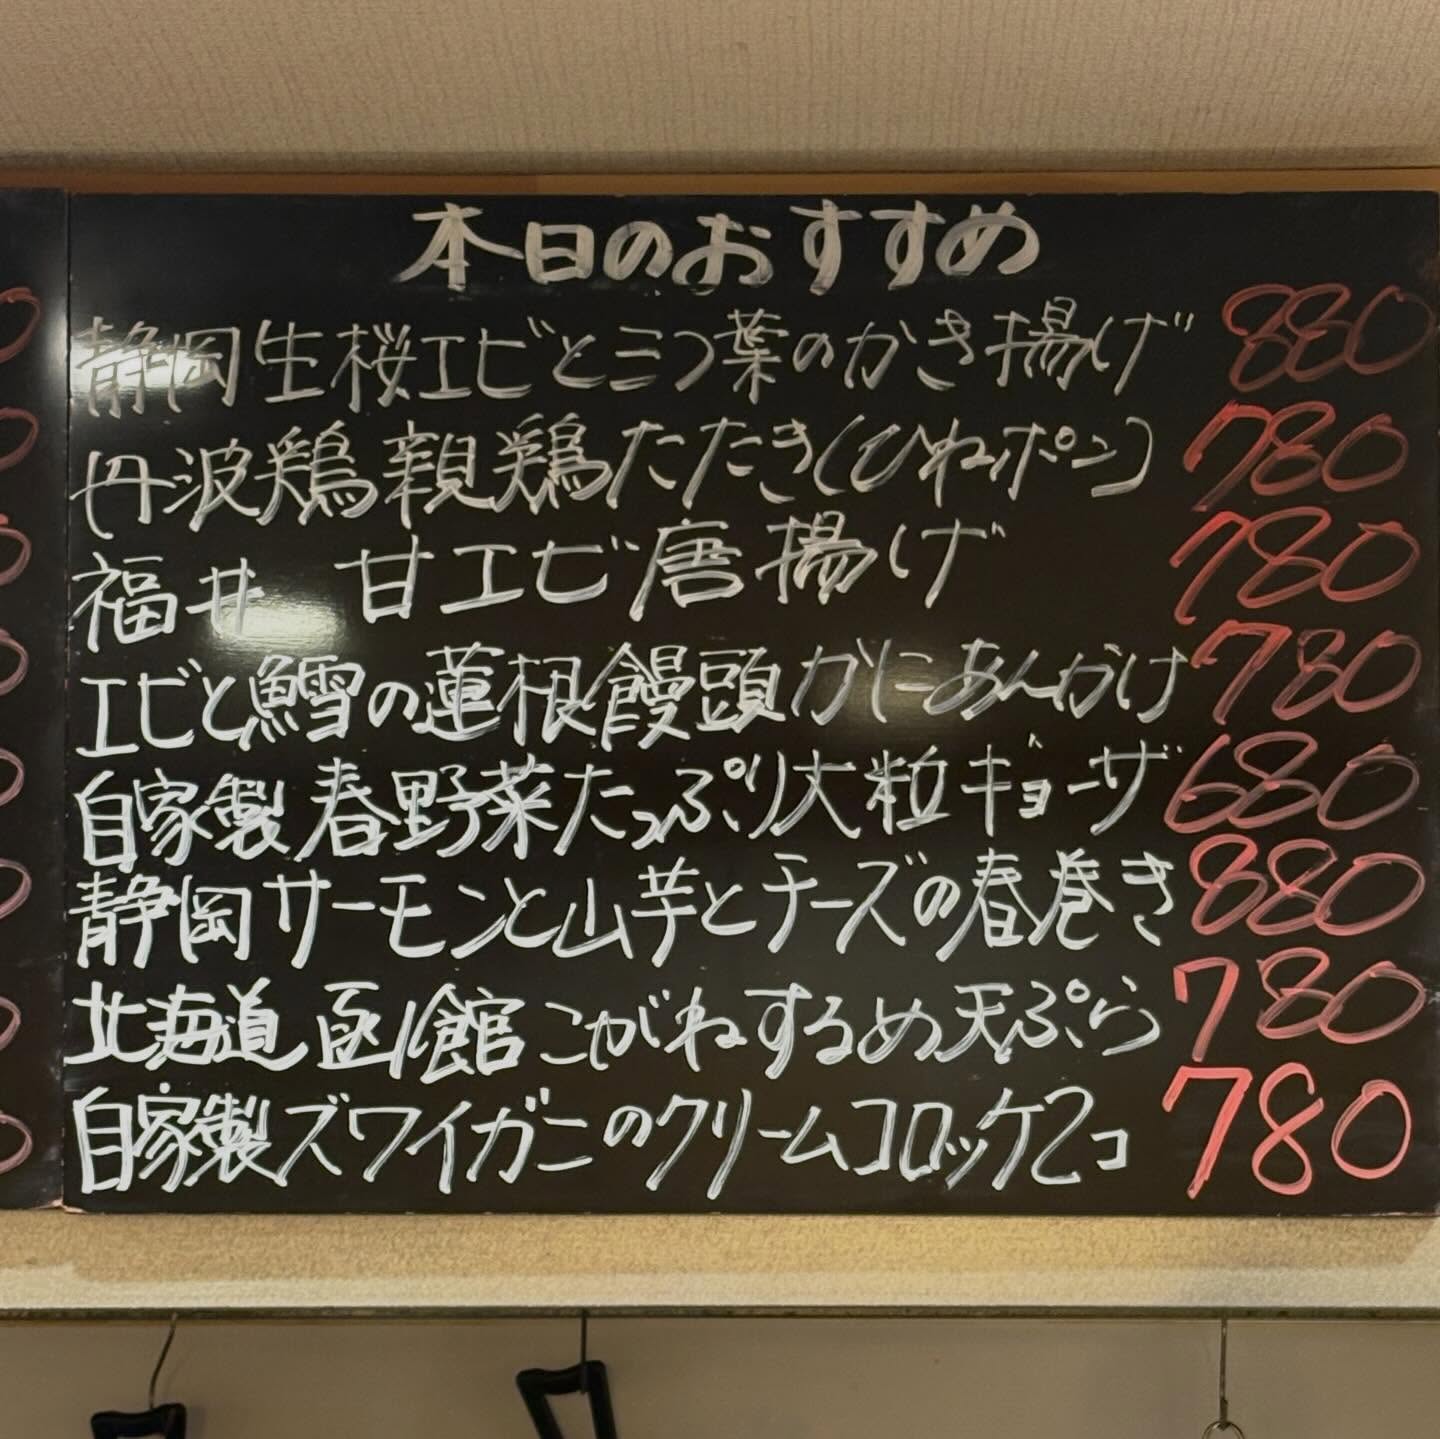 本日のおすすめ
静岡生桜エビと三つ葉のかき揚げ 880
丹波鶏親鶏たたき(ひねポン) 780
福井 甘エビ唐揚げ 780
エビと鱈の蓮根饅頭かにあんかけ 780
自家製春野菜たっぷり大粒ギョーザ 680
静岡サーモンと山芋とチーズの春巻き 880
北海道 函館こがねするめ天ぷら 780
自家製ズワイガニのクリームコロッケ2コ 780